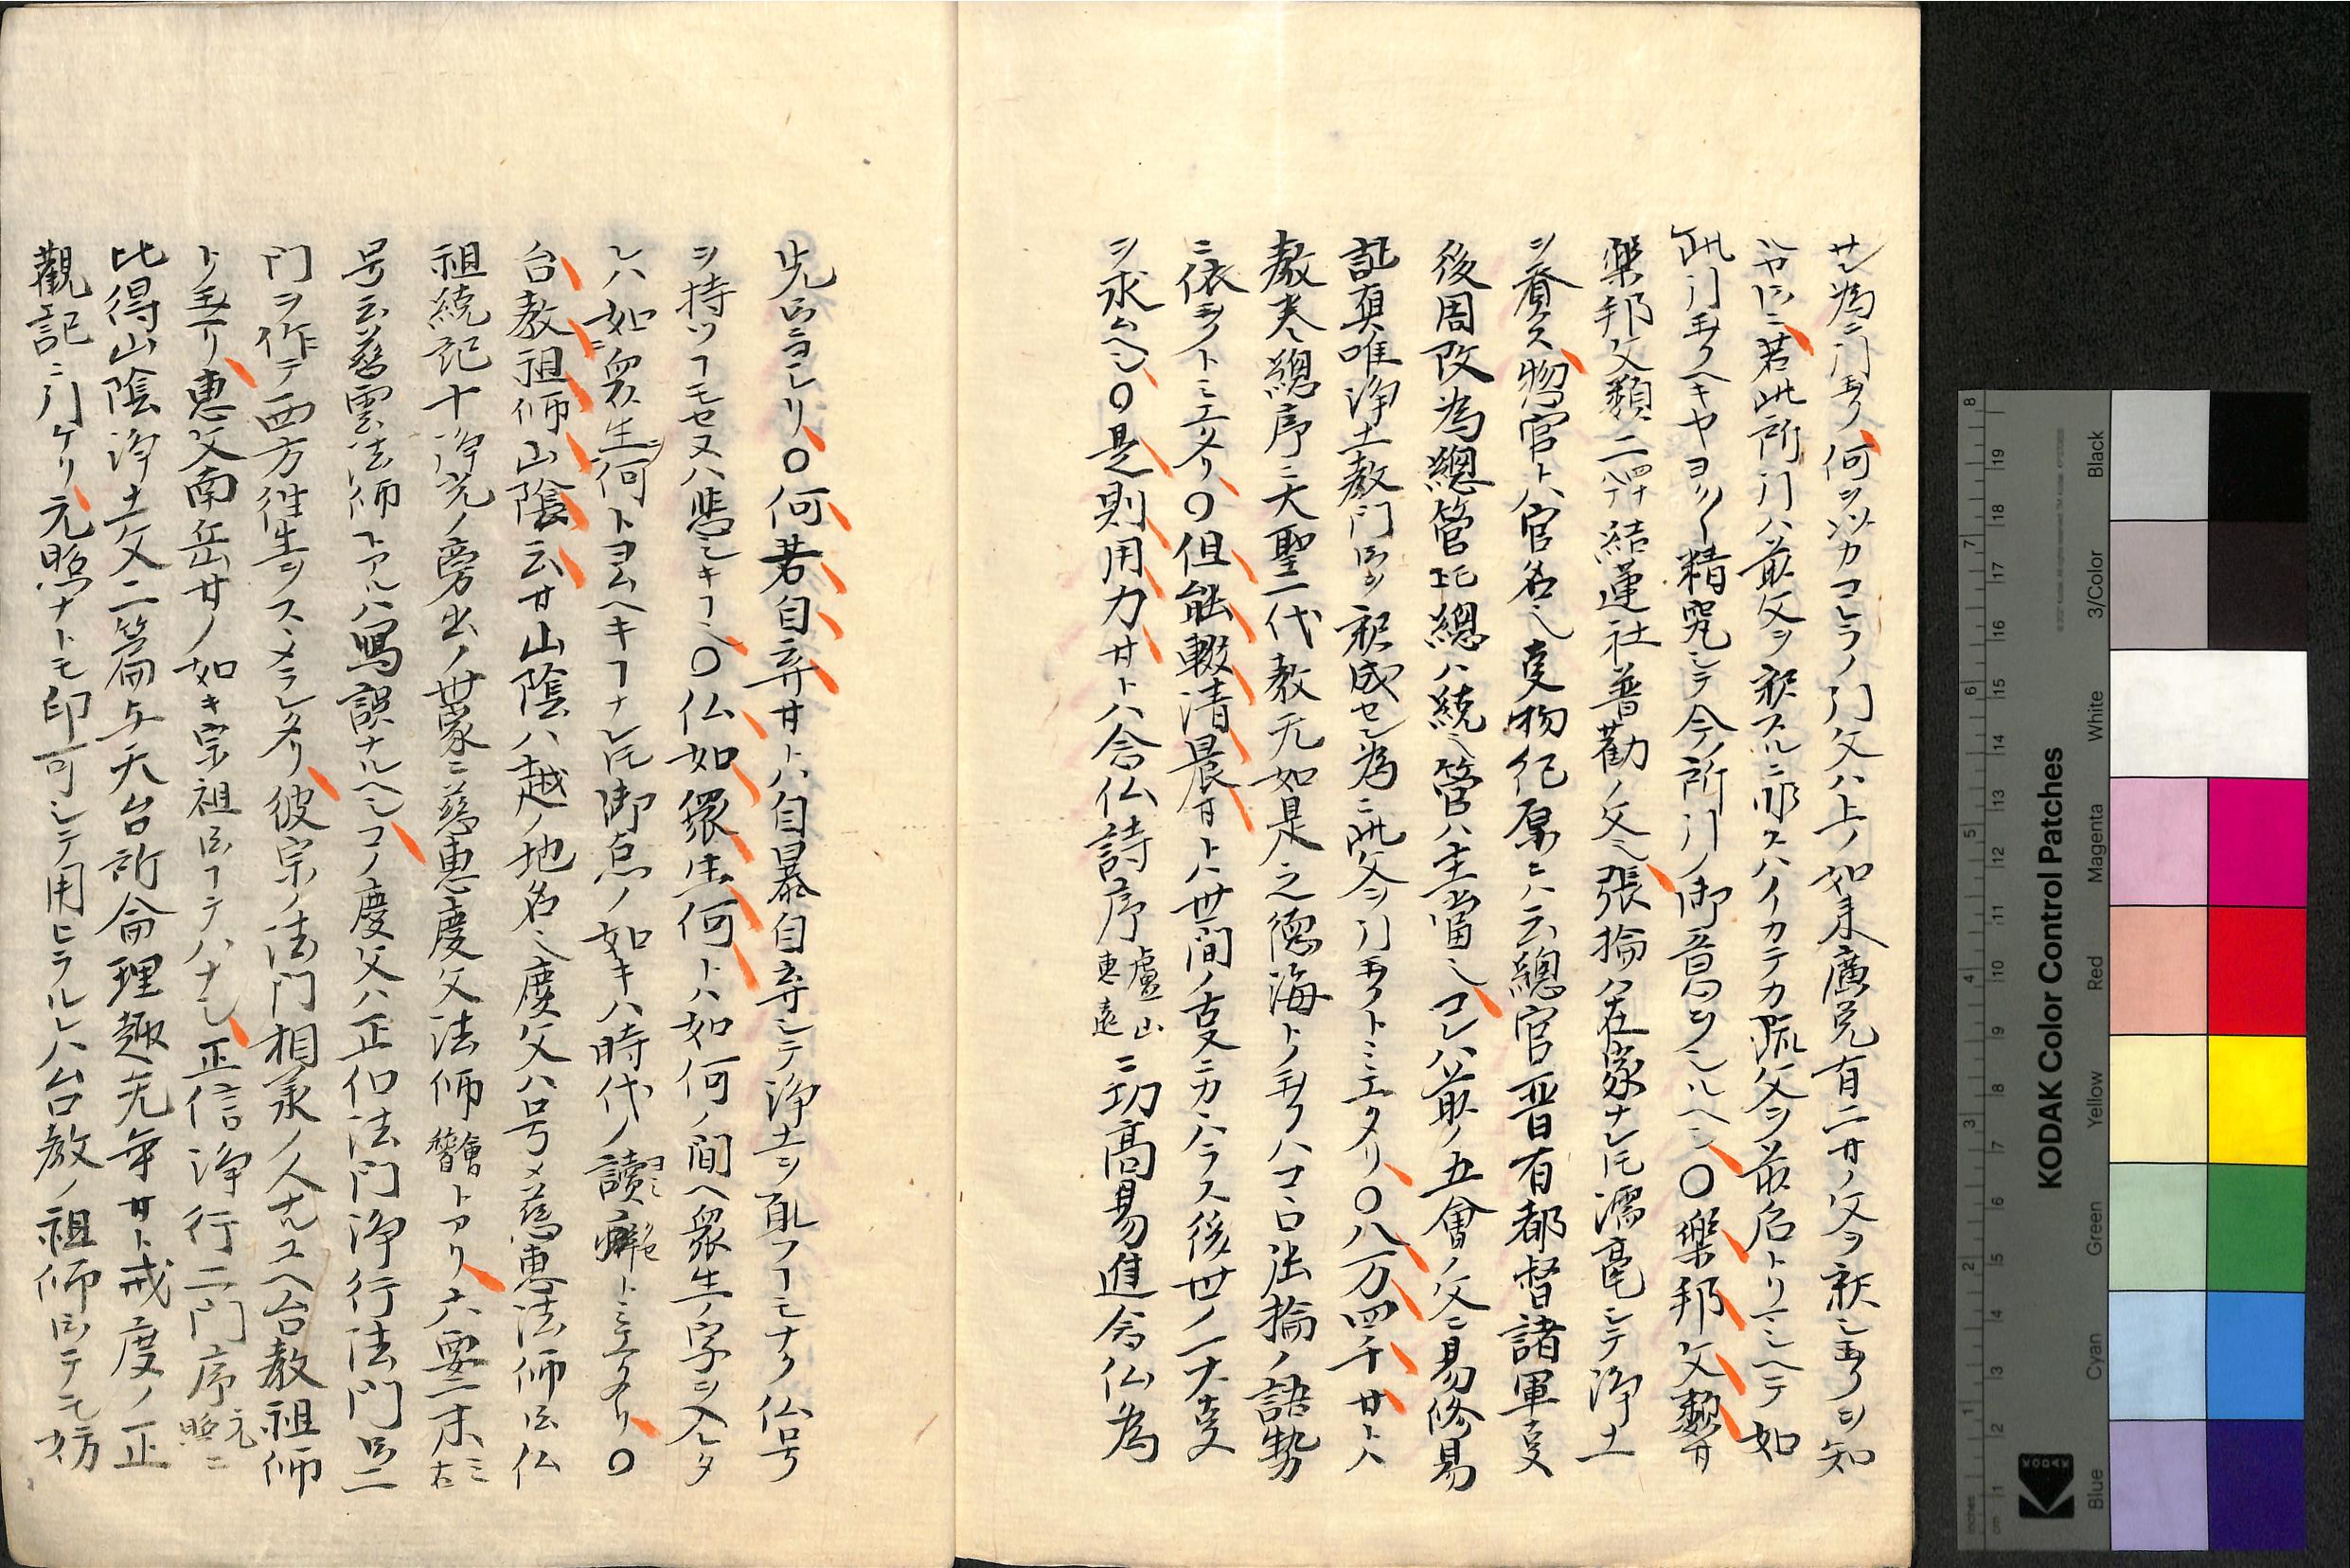 セン為ニ引玉フ何ヲ以カコレラノ引文ハ上ノ如来廣説有二廿ノ文ヲ釈シ玉フヲ知
ンヤ曰ニ若此所引ハ前文ヲ釈スルニ非スハイカテカ疏文ヲ前后トリマシヘテ如
此引玉フヘキヤヨク〱精究シテ今所引ノ御意ヲシルヘシ〇樂邦文類廿
樂邦文類二四十八丁結蓮社普勸ノ文也張掄ハ在家ナレ𪜈濡毫シテ浄土
ヲ賛ス惣官トハ官名也事物紀原ニハ云總官晋有都督諸軍事
後周改為總管矣總ハ統也管ハ主當也コレハ前ノ五會ノ文ニ易修易
証真唯浄土教門曰ヲ釈成セン為ニ此文ヲ引玉フトミエタリ〇八万四千廿トハ
教巻總序ニ大聖一代教无如是之徳海トノ玉フハココニ張掄ノ語勢
ニ依玉フトミエタリ〇但能輟清晨廿トハ世間ノ事ニカハラス後世ノ一大事
ヲ求ムヘシ〇是則用力廿トハ念仏詩序盧山恵遠ニ功高易進念仏為
先曰ヨレリ〇何若自弃廿トハ自暴自弃シテ浄土ヲ頋フヿモナク仏号
ヲ持ツヿモセヌハ悲シキヿ也〇仏如衆生何トハ如何ノ間ヘ衆生ノ字ヲ入レタ
レハ如衆生何トヨムヘキヿナレ𪜈御点ノ如キハ時代ノ讀癖トミエタリ〇
台教祖師山陰云廿山陰ハ越ノ地名也慶文ハ号メ慈恵法師曰仏
祖統記十浄光ノ旁出ノ世家ニ慈恵慶文法師會稽トアリ六要二末三右
号云慈雲法師トアルハ寫誤ナルヘシコノ慶文ハ正信法門浄行法門曰二
門ヲ作テ西方徃生ヲスヽメラレタリ彼宗ノ法門相承ノ人ナルユヘ台教祖師
トノ玉ヘリ恵文南岳廿ノ如キ宗祖曰ヿテハナシ正信浄行二門序元照ニ
比得山陰浄土文二篇与天台所命理趣无牟廿ト戒度ノ正
觀記ニ引ケリ元照ナトモ印可シテ用ヒラルレハ台教ノ祖師曰テモ妨
KODAK Color Control Patches
Black
3/Color
White
Magenta
Red
Yellow
Green
Cyan
Blue
KODAK